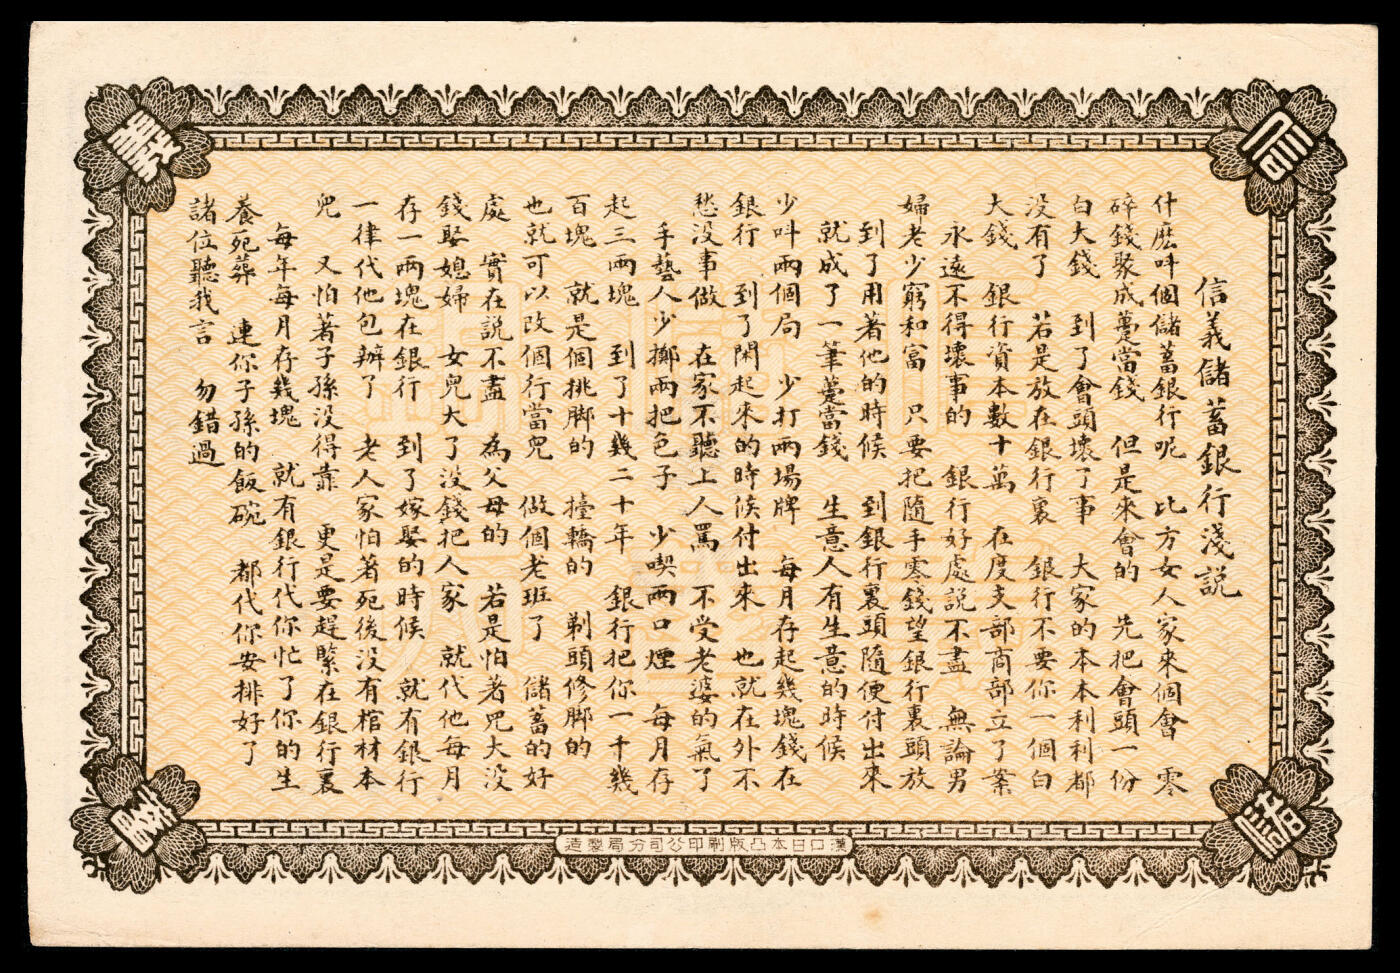 信義儲蓄銀行淺説
什麽呌個儲蓄銀行呢　比方女人家來個會　零
碎錢聚成躉當錢　但是來會的　先把會頭一份
白大錢　到了會頭壞了事　大家的本本利利都
没有了　若是放在銀行裏　銀行不要你一個白
大錢　銀行資本數十萬　在度支部商部立了案
永遠不得壞事的　銀行好處說不盡　無論男
婦老少窮和富　只要把隨手零錢望銀行裏頭放
到了用著他的時候　到銀行裏頭隨便付出來
就成了一筆躉當錢　生意人有生意的時候
少呌兩個局　少打兩場牌　每月存起幾塊錢在
銀行　到了閑起來的時候付出來　也就在外不
愁没事做　在家不聽上人罵　不受老婆的氣了
手藝人少擲兩把色子　少喫兩口煙　每月存
起三兩塊　到了十幾二十年　銀行把你一千幾
百塊　就是個挑脚的　擡轎的　剃頭修脚的
也就可以改個行當兒　做個老班了　儲蓄的好
處　實在説不盡　為父母的　若是怕著兒大没
錢娶媳婦　女兒大了没錢把人家　就代他每月
存一兩塊在銀行　到了嫁娶的時候　就有銀行
一律代他包辦了　老人家怕著死後没有棺材本
兒　又怕著子孫没得靠　更是要趕緊在銀行裏
每年每月存幾塊　就有銀行代你忙了你的生
養死葬　連你子孫的飯碗　都代你安排好了
諸位聽我言　勿錯過
信
義
儲
蓄
漢口日本凸版刷印公司分局製造